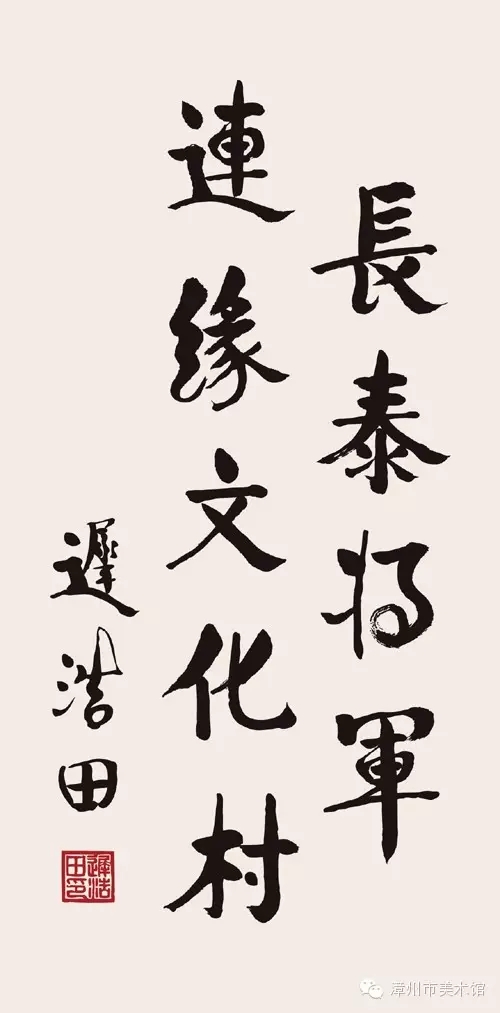 長泰将軍
連缘文化村
遲浩田
遲浩田印
漳州市美术馆